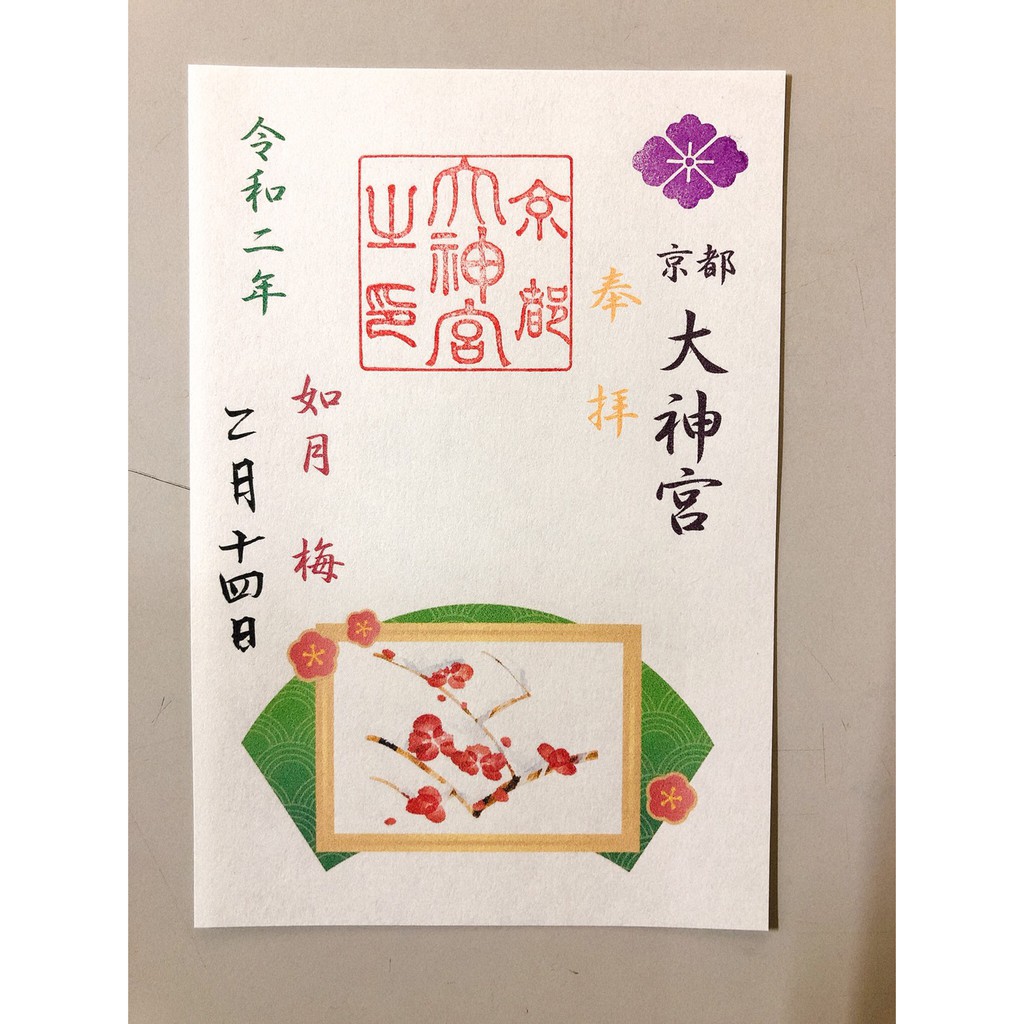 京都
大神宮
奉拝
京都
大神宮
之印
如月 梅
令和二年
二月十四日